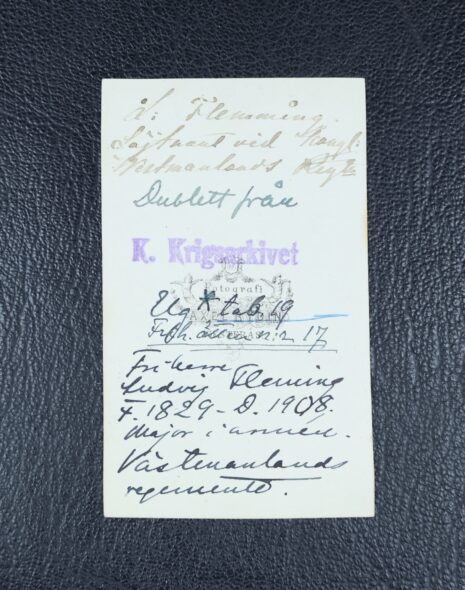 L: Flemming.
Löjtnant vid Kongl:
Westmanlands Regte
Dublett från
K. Krigsarkivet
Fotografi
tab. 19
Frih. ätten n:r 17
Friherre
Ludvig Fleming
F. 1829 - D. 1908.
Major i armén.
Västmanlands
regemente.